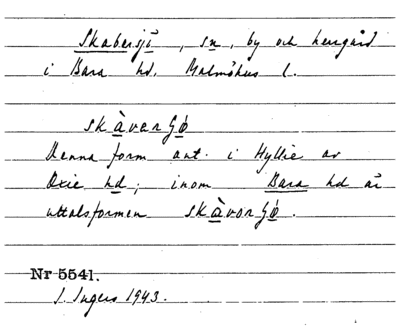 Skabersjö, sn, by och herrgård
i Bara hd. Malmöhus l.
skàvarʃø
Denna form ant. i Hyllie av
Oxie hd; inom Bara hd är
uttalsformen skàvorʃø.
Nr 5541.
I. Ingers 1943.